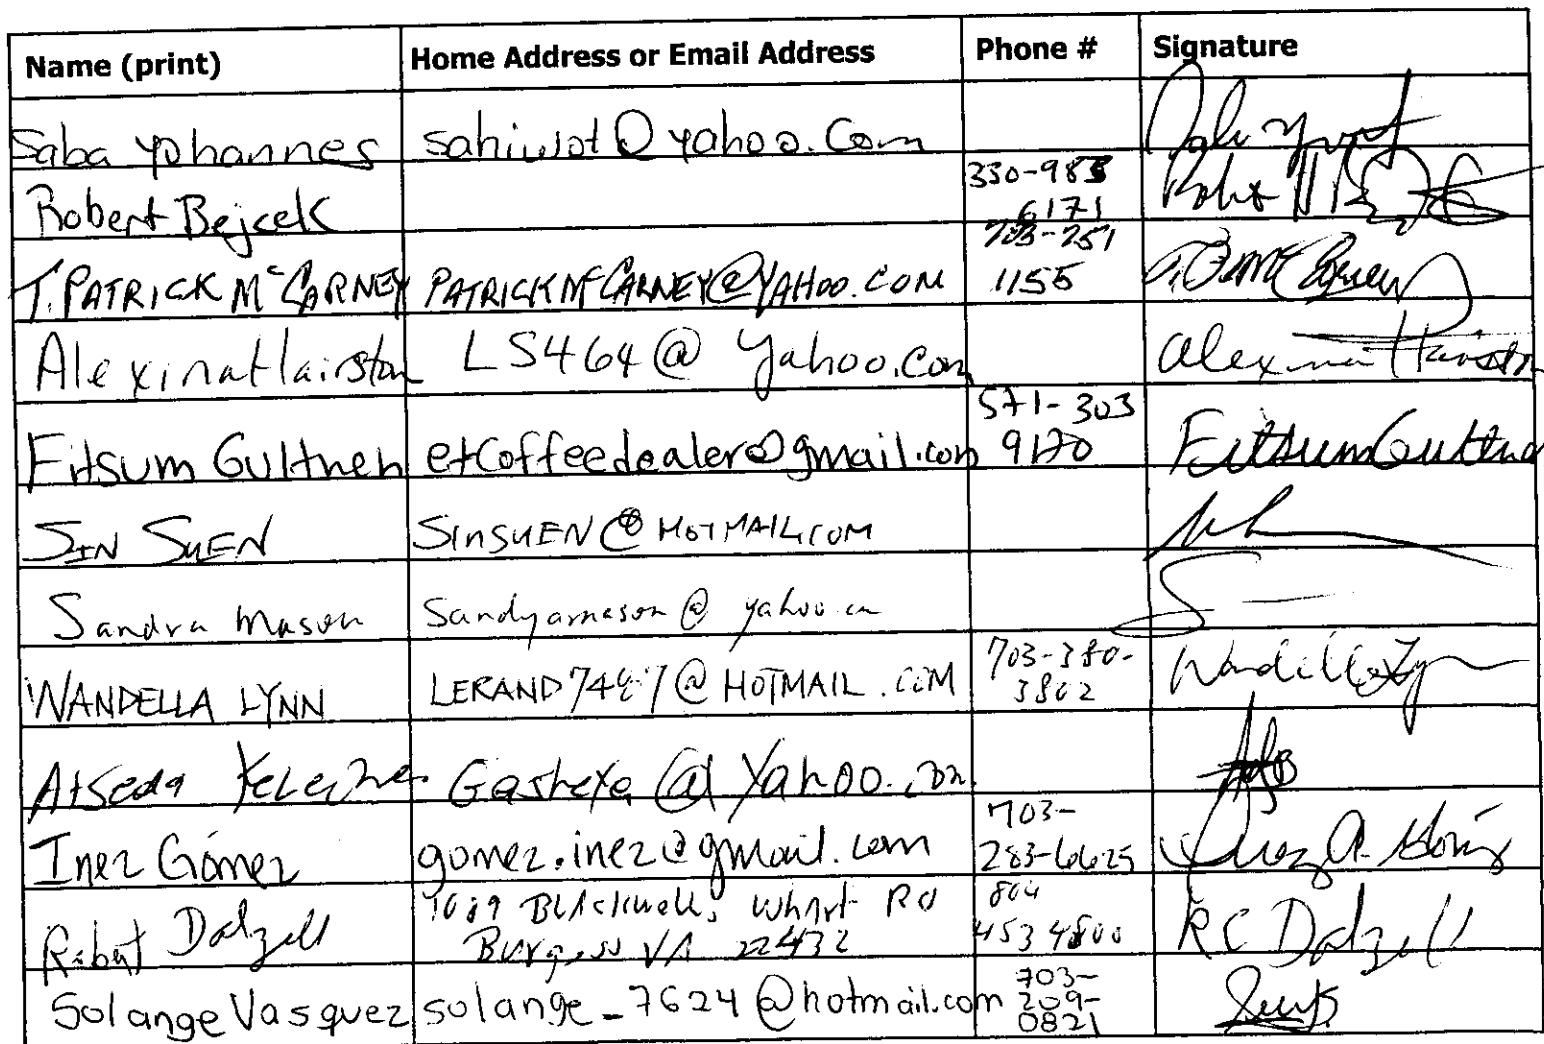 Name (print) Home Address or Email Address Phone # Signature
Saba Yohannes sahiwot@yahoo.com
Robert Bejcek 330-983
6171
T. PATRICK McCARNEY PATRICKMcCARNEY@YAHOO.COM 703-251
1155
Alexina Hairston LS464@yahoo.com Alexina Hairston
Fitsum Gulthen etcoffeedealer@gmail.com 571-303
9170 Fitsum
SIN SUEN SINSUEN@HOTMAIL.COM
Sandra Mason Sandyamason@yahoo.com
WANDELLA LYNN LERAND7487@HOTMAIL.COM 703-380-
3802 Wandella Lynn
Atseda @Yahoo.com
Inez Gómez gomez.inez@gmail.com 703-
283-6625
Robert Dalzell Blackwells Wharf Rd 804
Burgess VA 22432 453 4800 RC Dalzell
Solange Vasquez solange_7624@hotmail.com 703-
209-
0821